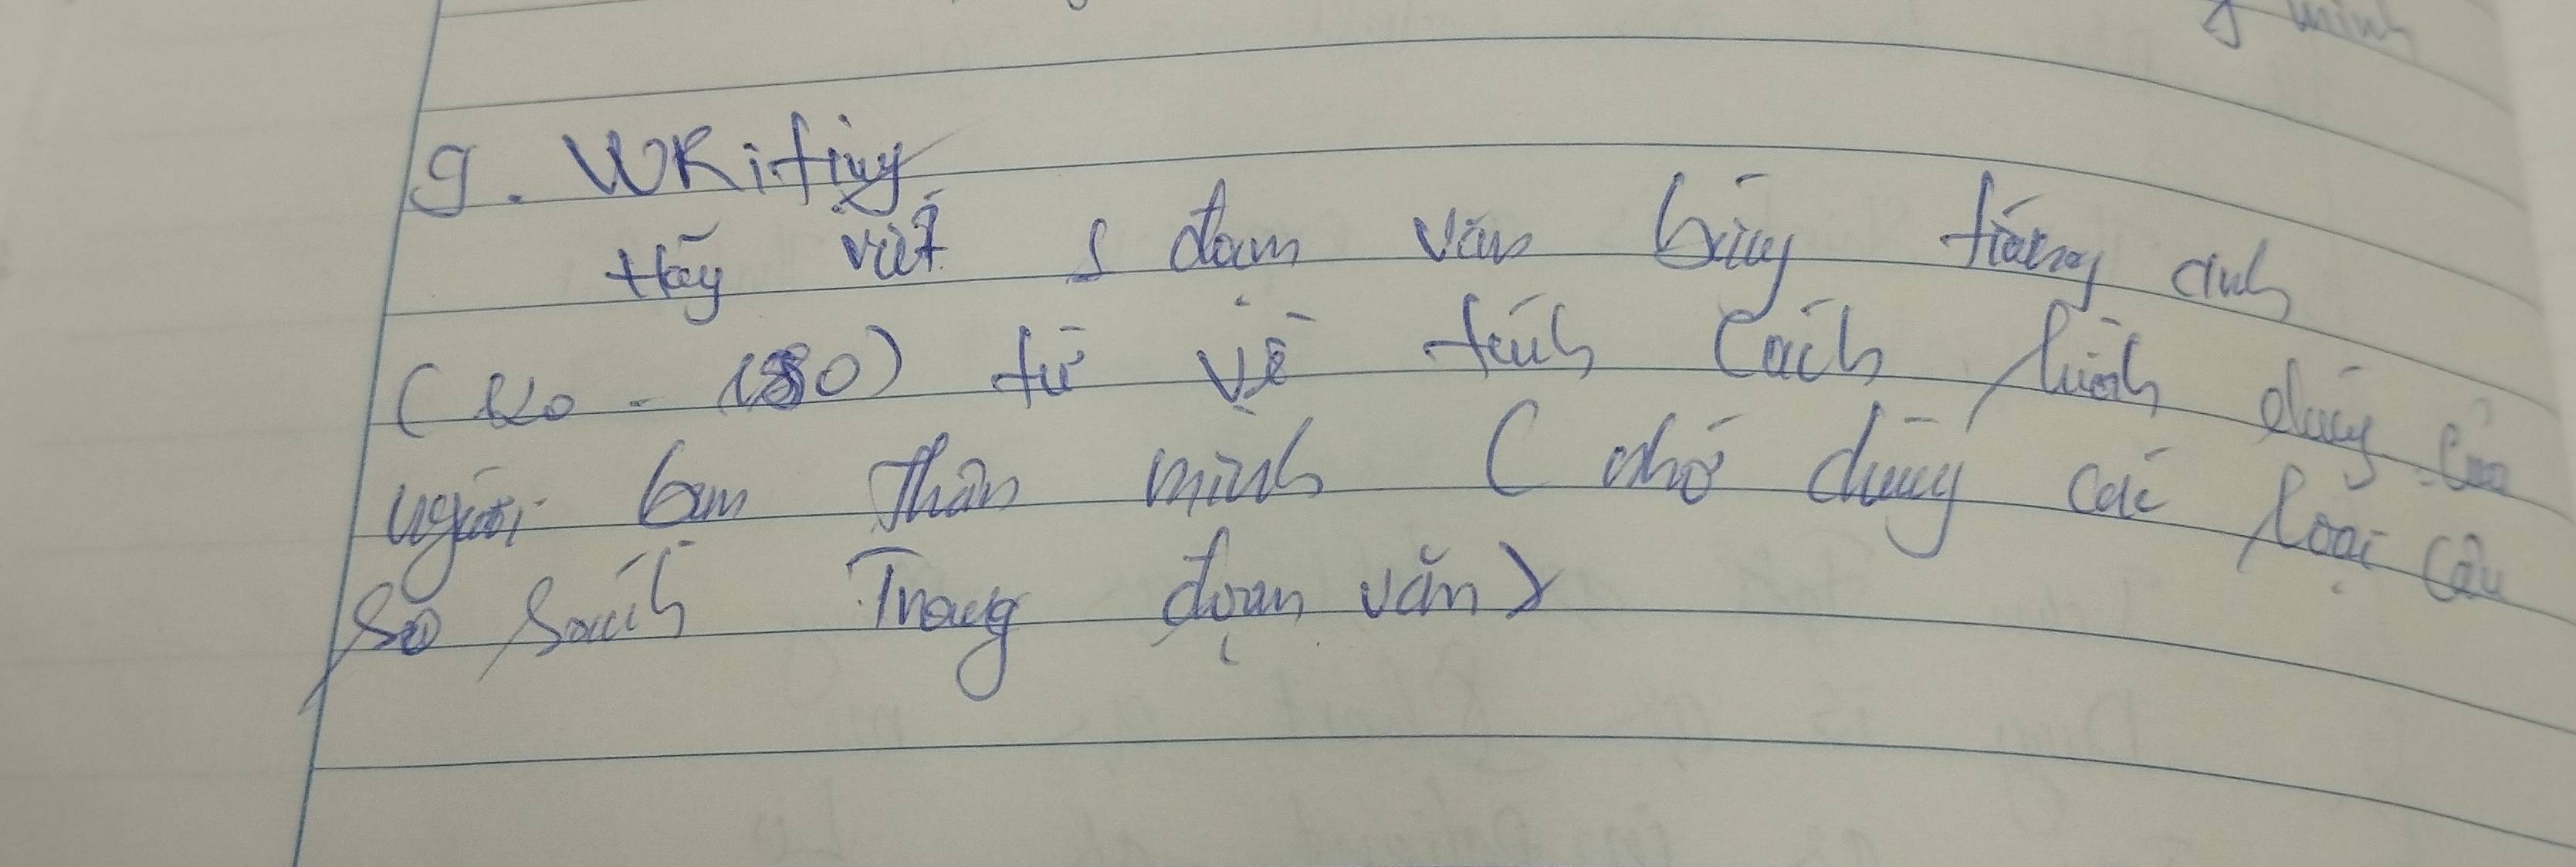 minh
9. WRiting
Hãy viết 1 đoạn văn bằng tiếng anh
( 120 - 150) từ về tính cách hình dáng của
người bạn thân mình ( nhớ dùng các loại câu
so sánh Trong đoạn văn)